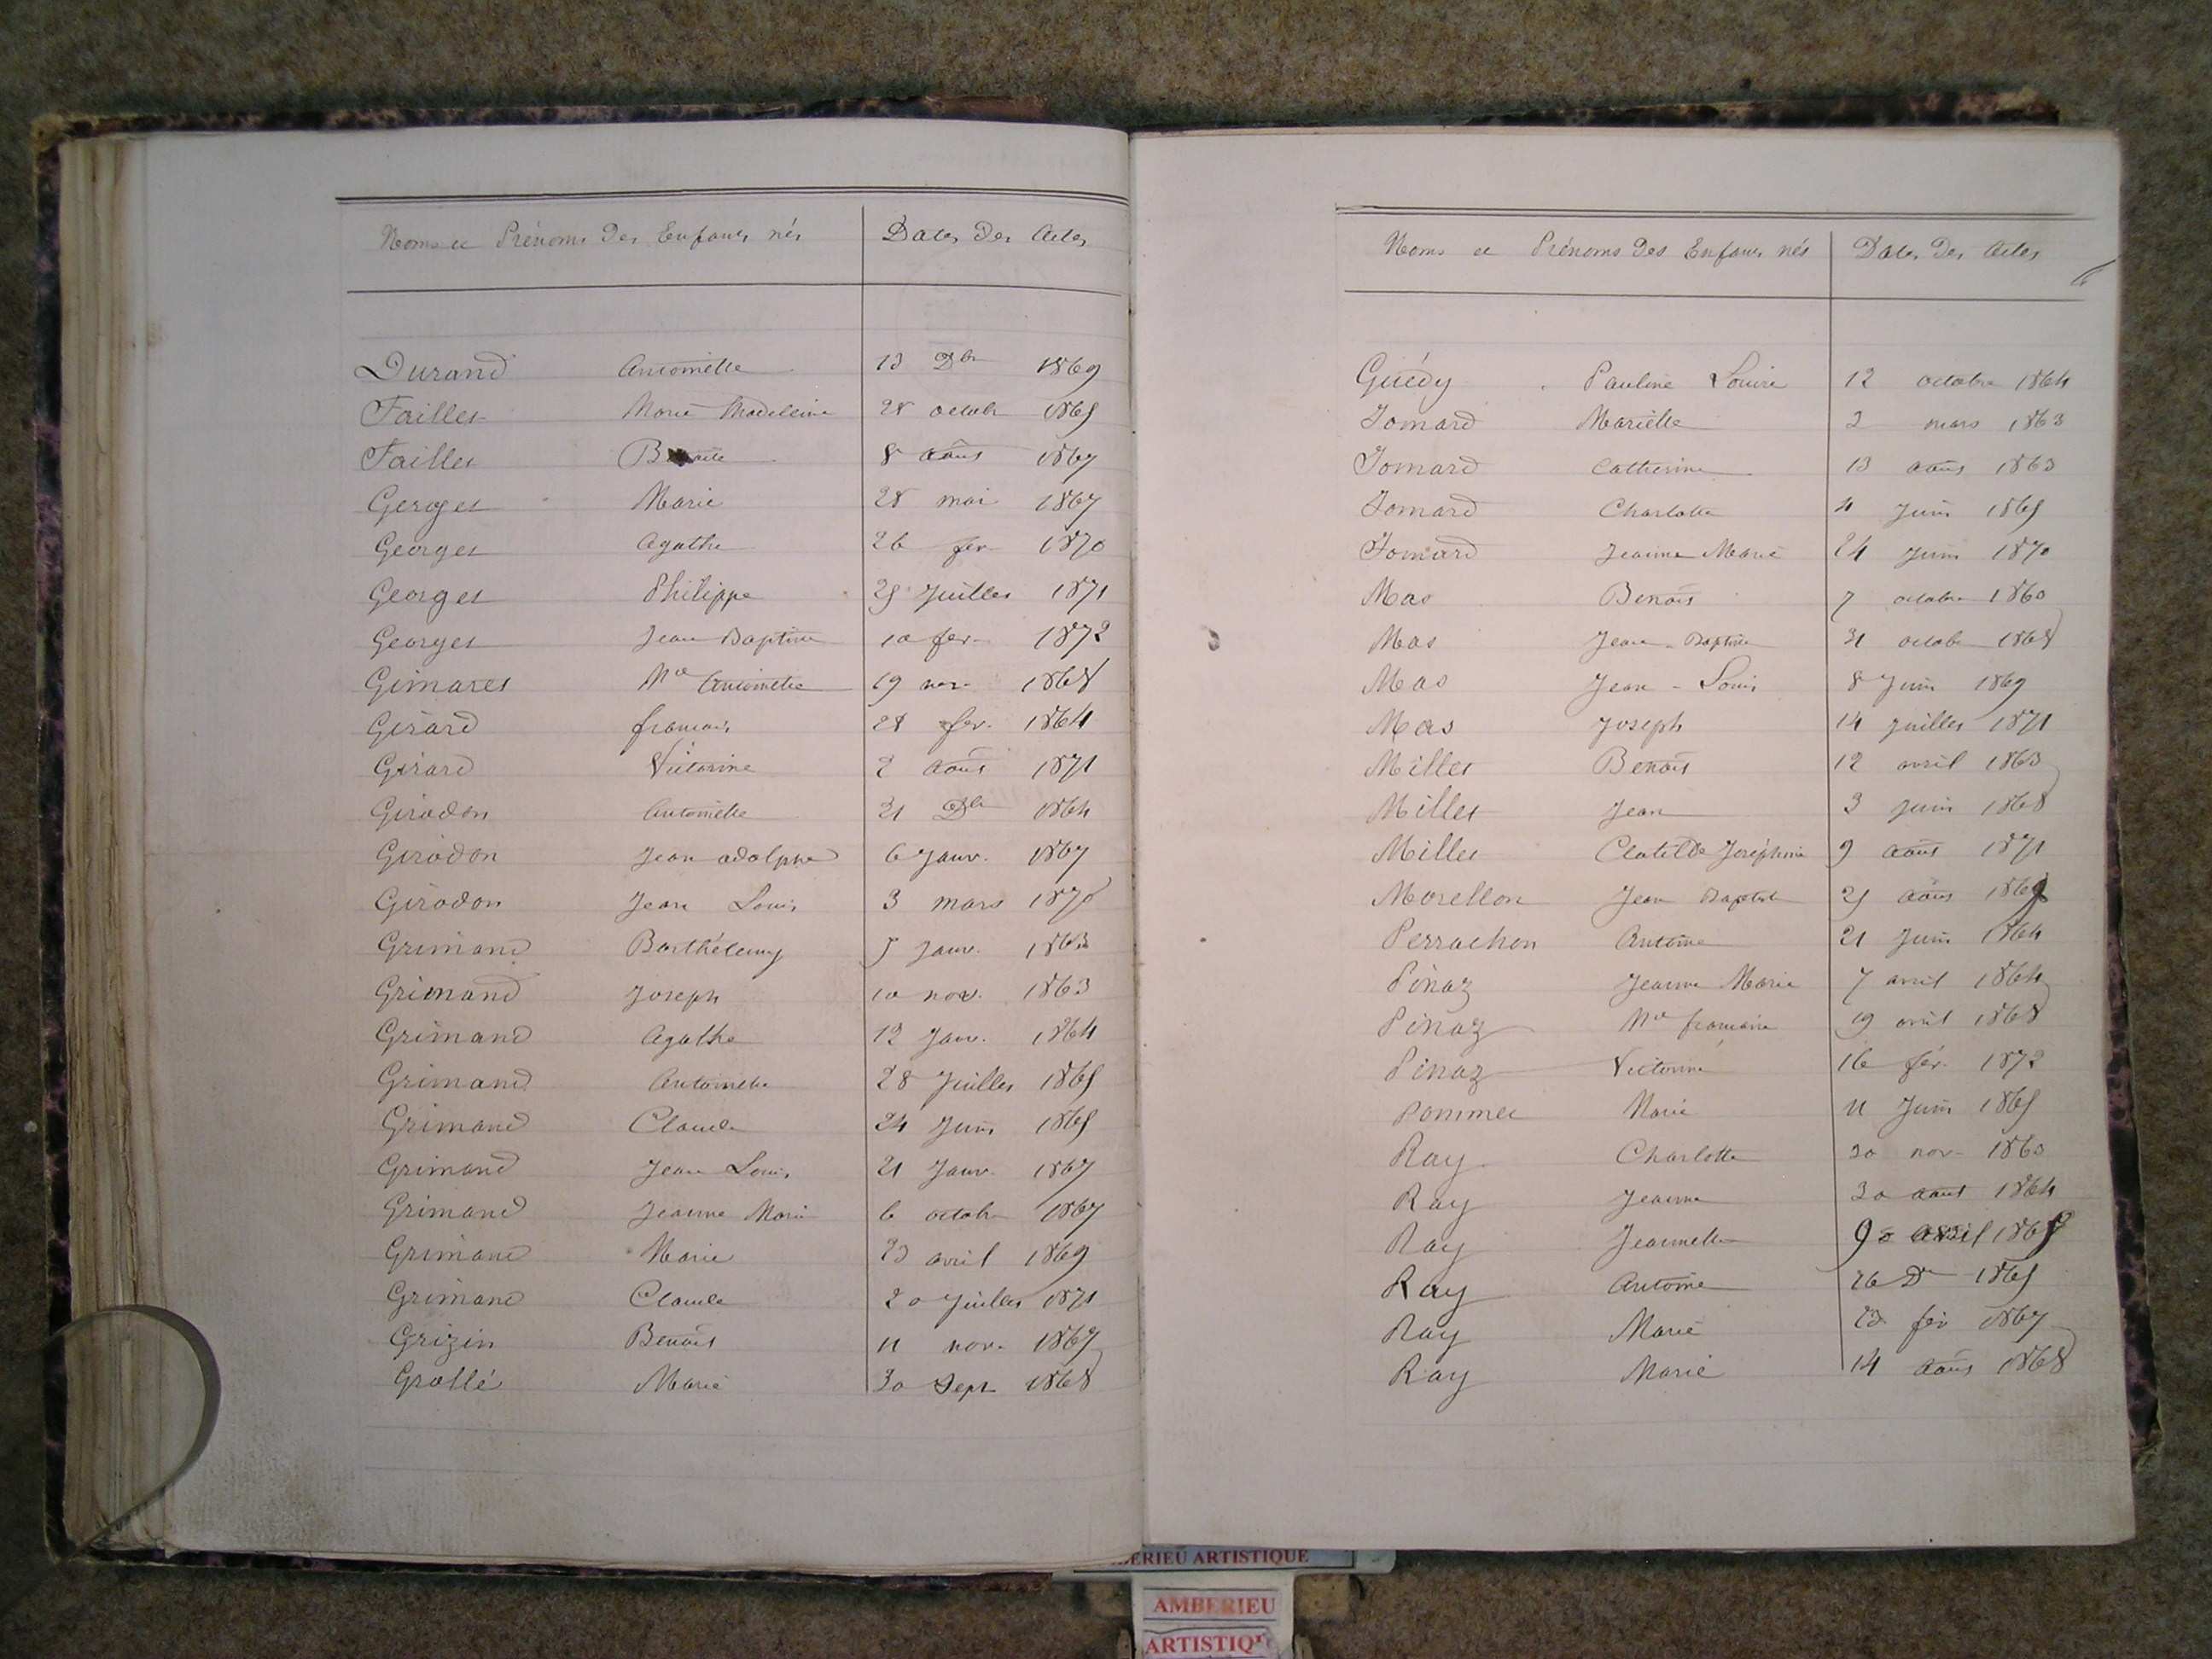 Noms et Prénoms des Enfants nés Dates des Actes
Durand Antoinette 13 Dbre 1869
Failles Marie Madeleine 28 octobre 1865
Failles Benoite 8 août 1867
Georges Marie 28 mai 1867
Georges Agathe 26 fev 1870
Georges Philippe 25 Juillet 1871
Georges Jean Baptiste 10 fev. 1872
Gimares Me Antoinette 19 nov. 1868
Girard françois 28 fev. 1864
Girard Victorine 2 août 1871
Girodon Antoinette 31 Dbre 1864
Girodon Jean adolphe 6 Janv. 1867
Girodon Jean Louis 3 mars 1870
Grimand Barthélemy 5 Janv. 1863
Grimand Joseph 10 nov. 1863
Grimand Agathe 12 Janv. 1864
Grimand Antoinette 28 Juillet 1865
Grimand Claude 24 Juin 1865
Grimand Jean Louis 21 Janv. 1867
Grimand Jeanne Marie 6 octobre 1867
Grimand Marie 23 avril 1869
Grimand Claude 20 Juillet 1871
Grizin Benoit 11 nov. 1867
Grollé Marie 30 Sept 1868
Noms et Prénoms des Enfants nés Dates des Actes
Guédy Pauline Louise 12 octobre 1864
Jomard Mariette 2 mars 1863
Jomard Catherine 13 août 1863
Jomard Charlotte 4 Juin 1865
Jomard Jeanne Marie 24 Juin 1870
Mas Benoit 7 octobre 1863
Mas Jean-Baptiste 31 octobre 1868
Mas Jean-Louis 8 Juin 1869
Mas Joseph 14 Juillet 1871
Milles Benoit 12 avril 1863
Milles Jean 3 Juin 1868
Milles Clotilde Joséphine 9 août 1871
Morellon Jean Baptiste 25 août 1869
Perrachon Antoine 21 Juin 1864
Pinaz Jeanne Marie 7 avril 1864
Pinaz Me françoise 19 avril 1868
Pinaz Victorine 16 fév. 1872
Pommet Marie 11 Juin 1865
Ray Charlotte 30 nov. 1863
Ray Jeanne 30 août 1864
Ray Jeannette avril
Ray Antoine 26 Dre 1865
Ray Marie 23 fév 1867
Ray Marie 14 août 1868
BERIEU ARTISTIQUE
AMBERIEU
ARTISTIQ